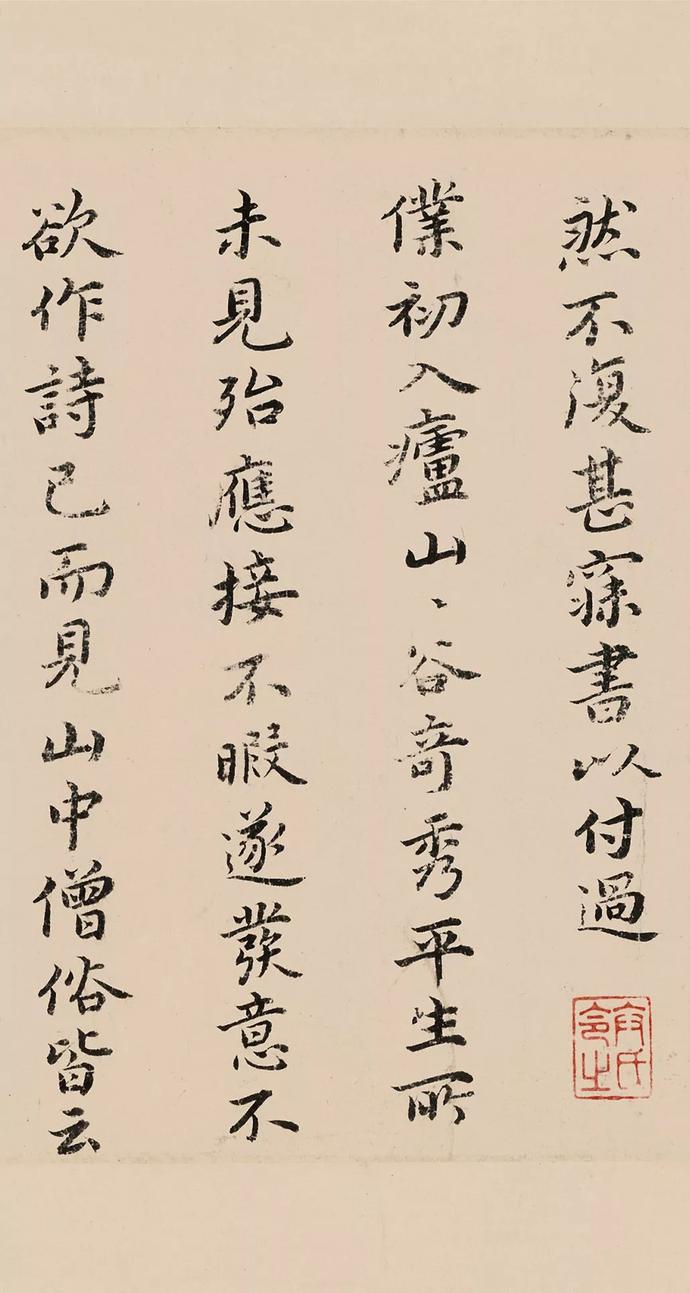 然不復甚寐書以付過
僕初入廬山〻谷奇秀平生所
未見殆應接不暇遂發意不
欲作詩已而見山中僧俗皆云
令之